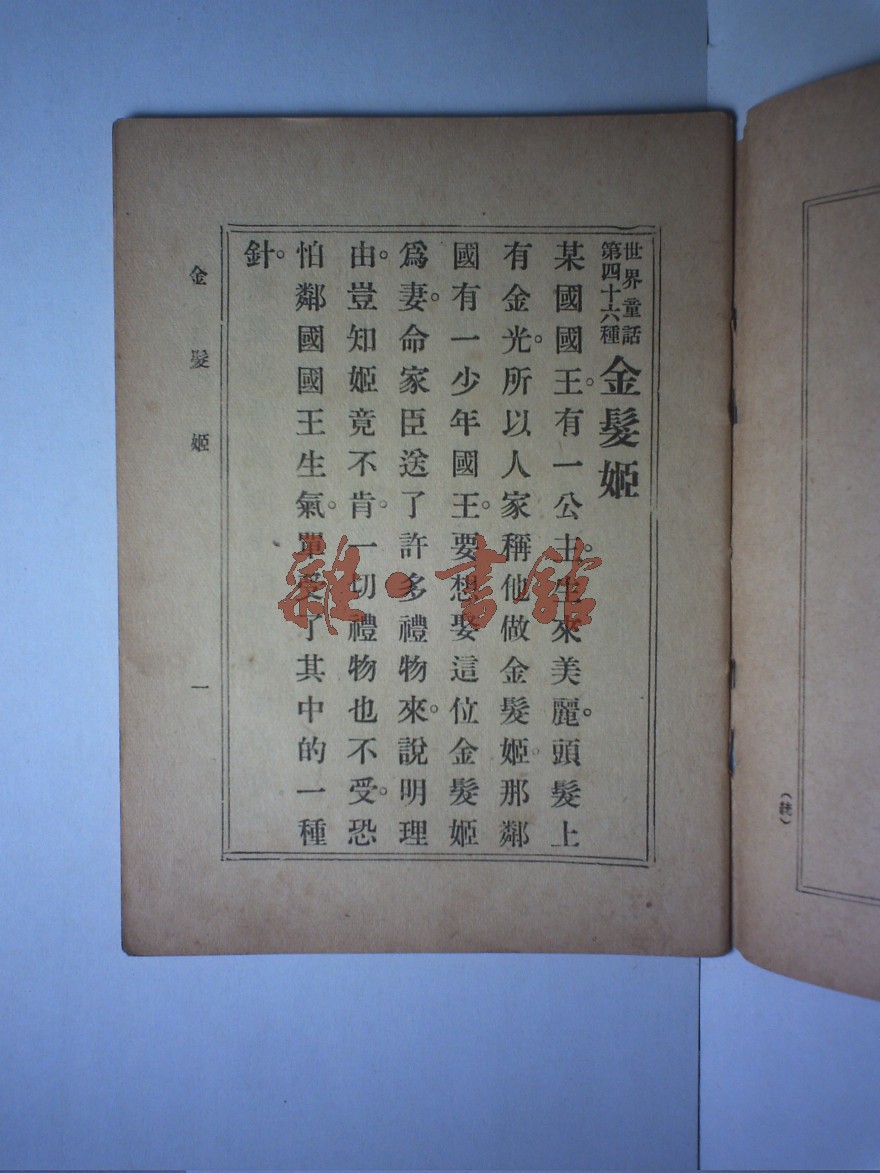 世界童話
第四十六種
金髮姬
某國國王。有一公主。生來美麗。頭髮上
有金光。所以人家稱他做金髮姬。那鄰
國有一少年國王。要想娶這位金髮姬
爲妻。命家臣送了許多禮物來。說明理
由。豈知姬竟不肯。一切禮物也不受。恐
怕鄰國國王生氣。單受了其中的一種
針。
金髮姬
一
雜・書館